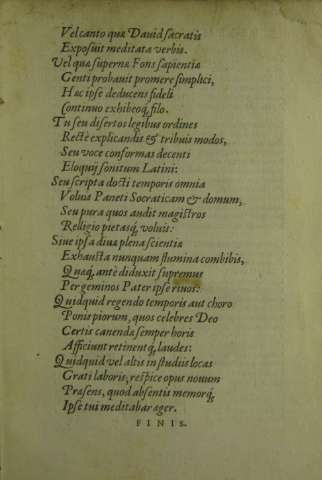 Vel canto quæ Dauid sacratis
Exposuit meditata verbis.
Vel quæ supernæ Fons sapientiæ
Genti probauit promere simplici,
Hac ipse deducens fideli
Continuo exhibeoq́; filo.
Tu seu disertos legibus ordines
Rectè explicandis & tribuis modos,
Seu voce conformas decenti
Eloquij sonitum Latini:
Seu scripta docti temporis omnia
Voluis Panetî Socraticam & domum,
Seu pura quos audit magistros
Relligio pietasq́; voluis:
Siue ipsa diuæ plena scientiæ
Exhausta nunquam flumina combibis,
Quæq́; antè diduxit supremus
Per geminos Pater ipse riuos:
Quidquid regendo temporis aut choro
Ponis piorum, quos celebres Deo
Certis canenda semper horis
Afficiunt retinentq́; laudes:
Quidquid vel altis in studiis locas
Grati laboris, respice opus nouum
Præsens, quod absentis memorq́;
Ipse tui meditabar ager.
FINIS.